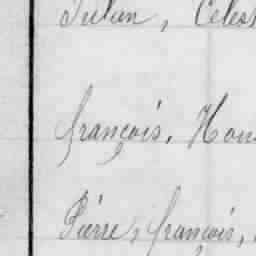 Julien, Célest
françois. Hon
Pierre, françois,